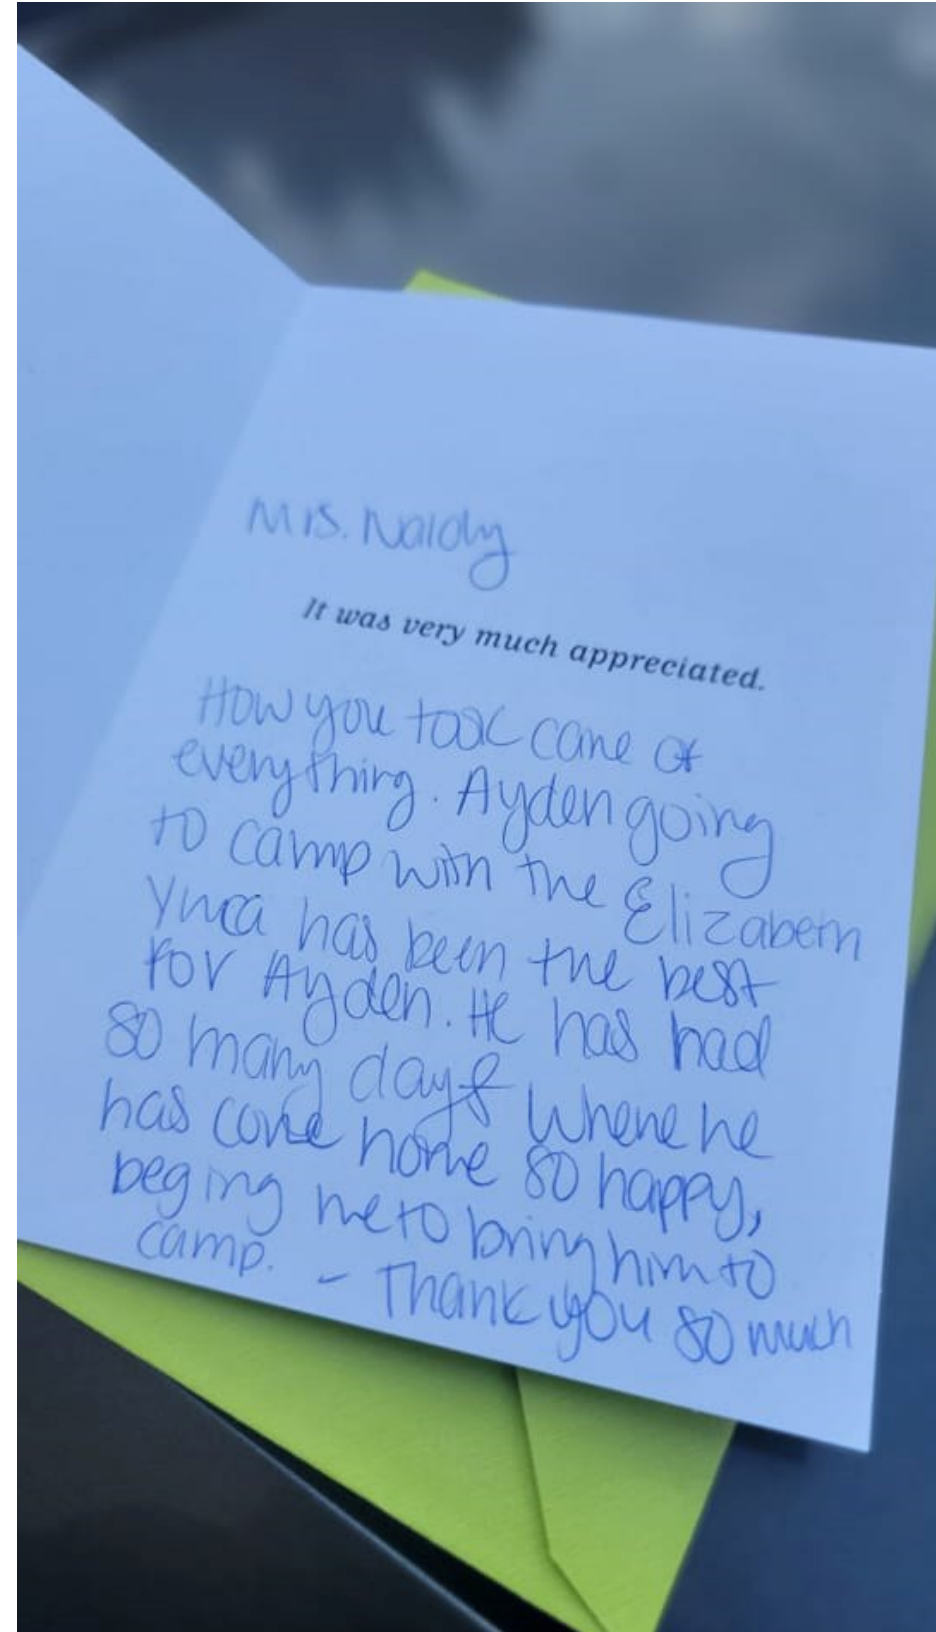 Mrs. Naidy
It was very much appreciated.
How you took care of
everything. Ayden going
to camp with the Elizabeth
Ymca has been the best
for Ayden. He has had
so many days where he
has come home so happy,
beging me to bring him to
camp. - Thank you so much